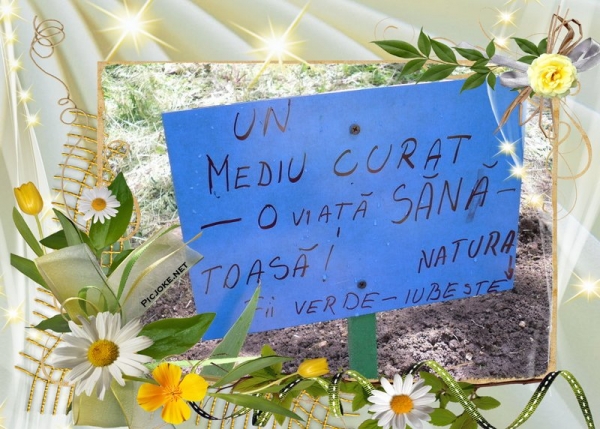 UN
MEDIU CURAT
– O VIAȚĂ SĂNĂ–
TOASĂ!
NATURA
Fii VERDE – IUBEȘTE
PICJOKE.NET